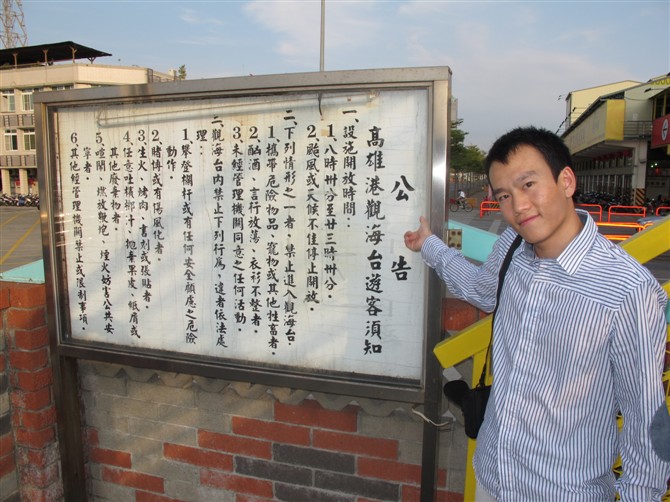 公告
高雄港觀海台遊客須知
一、設施開放時間：
1.八時卅分至廿三時卅分。
2.颱風或天候不佳停止開放。
二、下列情形之一者，禁止進入觀海台。
1.攜帶危險物品、寵物或其他牲畜者。
2.酗酒、言行放蕩、衣衫不整者。
3.未經管理機關同意之任何活動。
三、觀海台內禁止下列行為，違者依法處
理：
1.攀登欄杆或有任何安全顧慮之危險
動作。
2.賭博或有傷風化者。
3.生火、烤肉、書刻或張貼者。
4.任意吐檳榔汁、拋棄果皮、紙屑或
其他廢棄物者。
5.喧鬧、燃放鞭炮、煙火妨害公共安
寧者。
6.其他經管理機關禁止或限制事項。